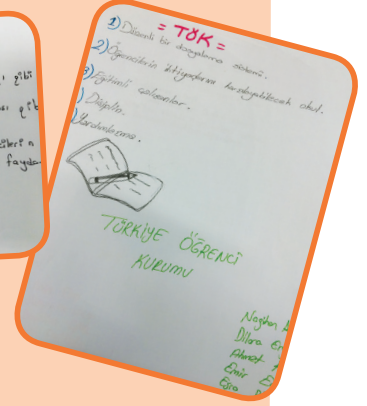 gibi
= TÖK =
1) Düzenli bir dosyalama sistemi.
2) Öğrencilerin ihtiyaçlarını karşılayabilecek okul.
3) Eğitimli çalışanlar.
) Disiplin.
) Yardımlaşma.
TÜRKİYE ÖĞRENCİ
KURUMU
Nagihan
Dilara
Ahmet
Emir
Esra